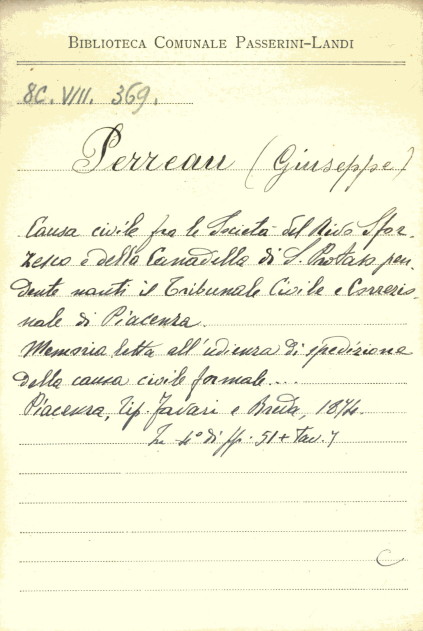 BIBLIOTECA COMUNALE PASSERINI-LANDI
8C. VIII. 369.
Perreau (Giuseppe)
Causa civile fra le Società del Rivo Sfor-
zesco e della Canadella di S. Protaso pen-
dente nanti il Tribunale Civile e Correzio-
nale di Piacenza.
Memoria letta all'udienza di spedizione
della causa civile formale...
Piacenza, Tip. Favari e Breda, 1874.
In 4° di pp. 51 + tav. 7
C